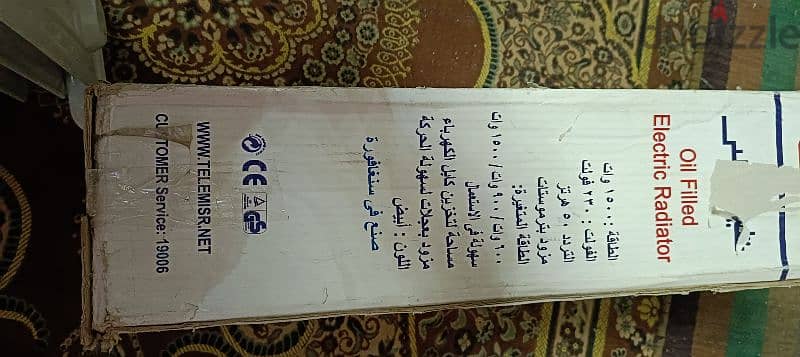 Oil Filled
Electric Radiator
الطاقة : ١٥٠٠ وات
الفولت : ٢٣٠ فولت
التردد ٥٠ هرتز
مزود بترموستات
الطاقة المتغيرة:
٦٠٠ وات/ ٩٠٠ وات/ ١٥٠٠ وات
سهولة فى الاستعمال
مساحة لتخزين كابل الكهرباء
مزود بعجلات لسهولة الحركة
اللون : أبيض
صنع فى سنغافورة
CE GS
WWW.TELEMISR.NET
CUSTOMER Service: 19006
dubizzle